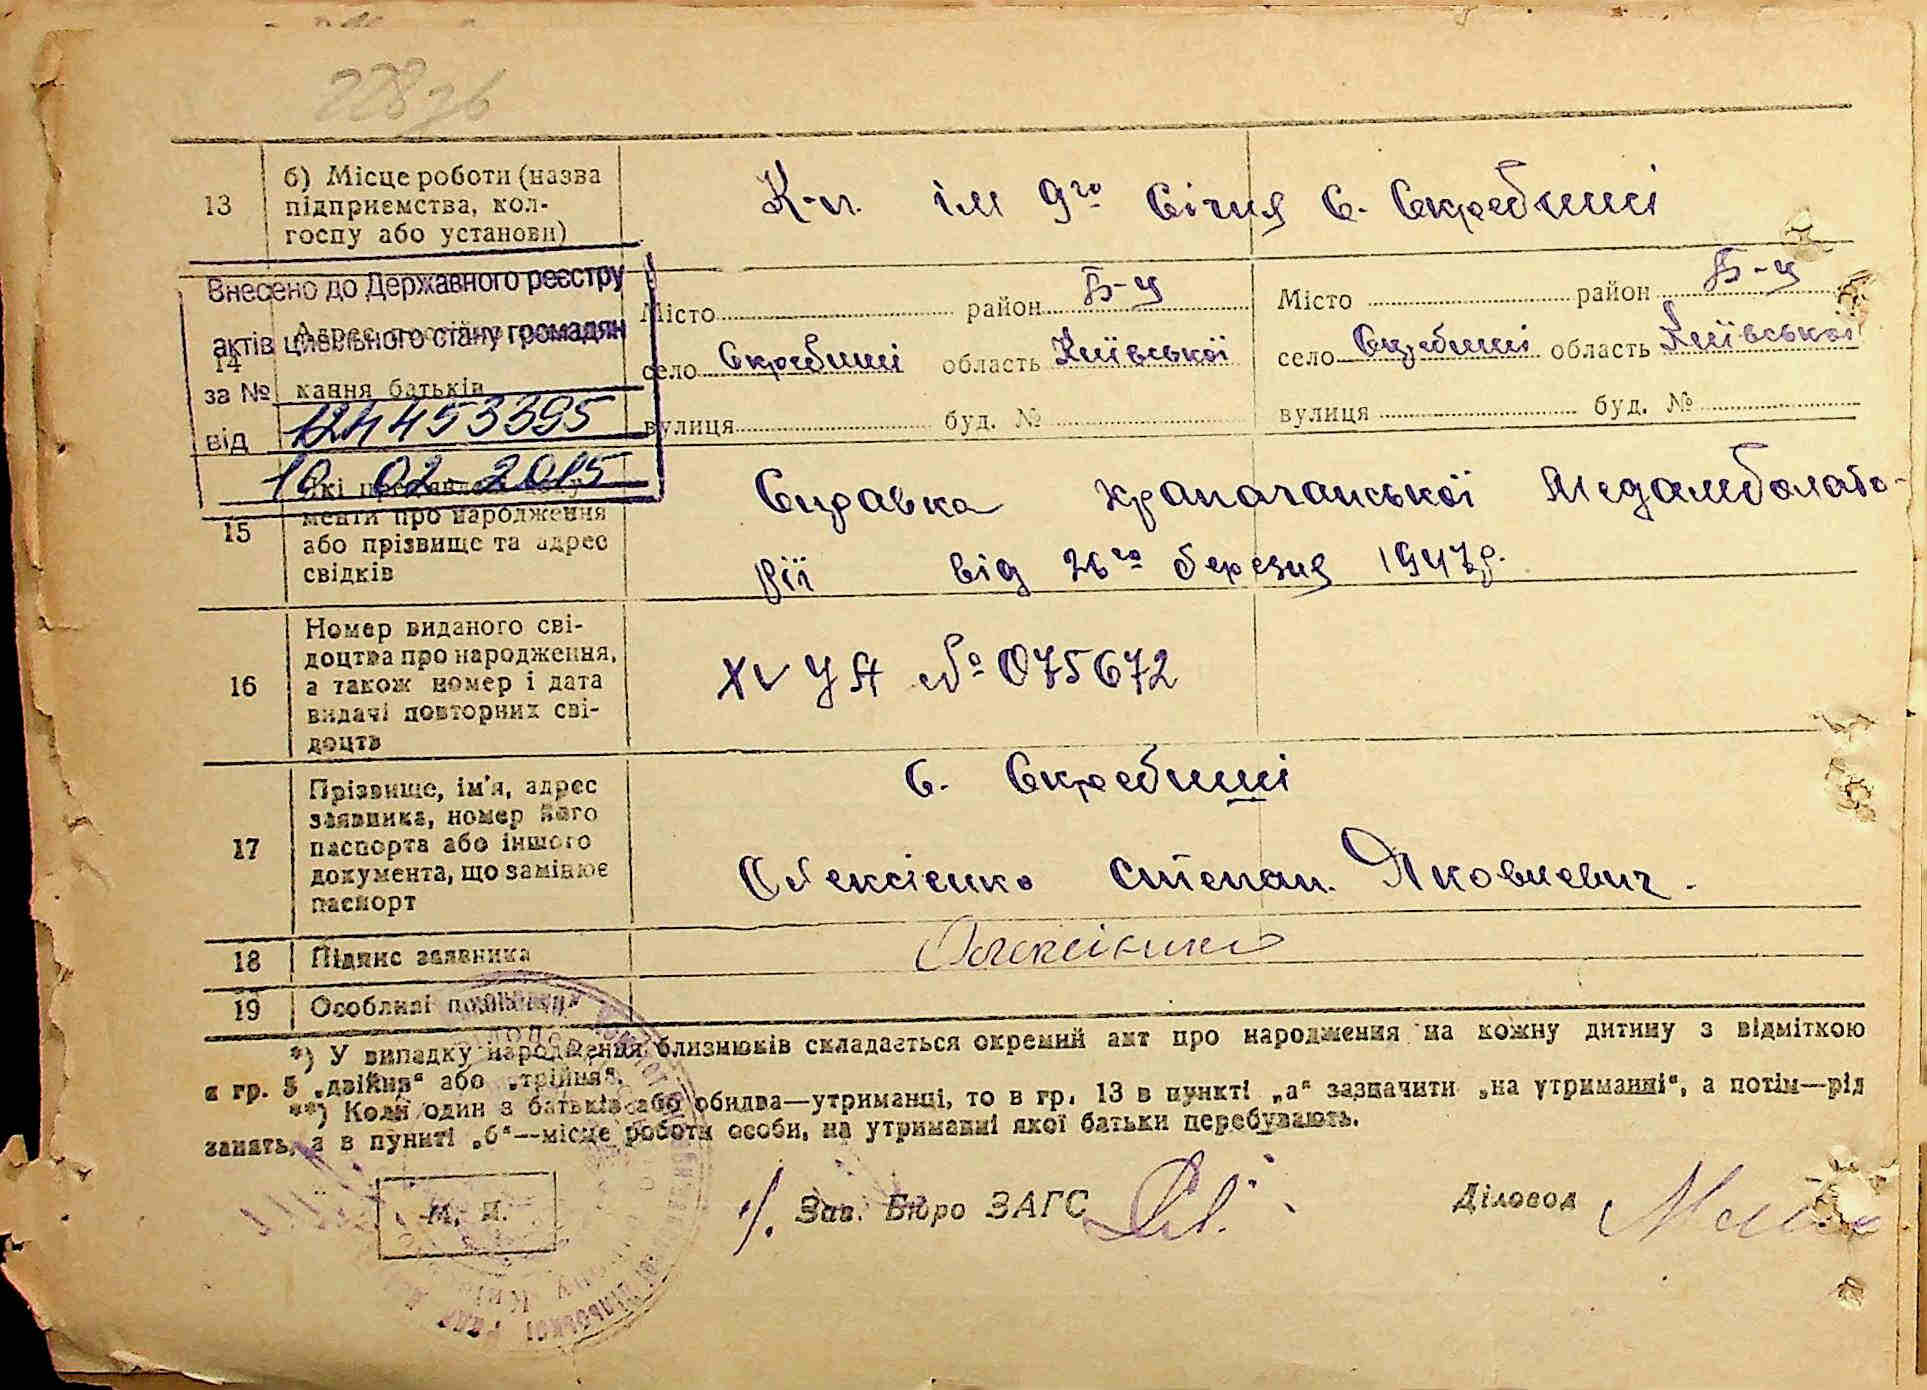 228зв
13
б) Місце роботи (назва
підприємства, кол-
госпу або установи)
К-п. ім 9го Січня с. Скребиші
Внесено до Державного реєстру
актів цивільного стану громадян
за №
124453395
від
10 02 2015
14
кання батьків
Місто район Б-Ц
село Скребиші область Київської
вулиця буд. №
Місто район Б-Ц
село Скребиші область Київської
вулиця буд. №
15
менти про народження
або прізвище та адрес
свідків
Справка від 26го березня 1947р.
16
Номер виданого сві-
доцтва про народження,
а також номер і дата
видачі повторних сві-
доцтв
XV УЯ № 075672
17
Прізвище, ім'я, адрес
заявника, номер його
паспорта або іншого
документа, що замінює
паспорт
с. Скребиші
Олексієнко Степан Яковлевич.
18
Підпис заявника
Олексієнко
19
Особливі
*) У випадку народження близнюків складається окремий акт про народження на кожну дитину з відміткою
в гр. 5 „двійня“ або „трійня“.
**) Коли один з батьків або обидва—утриманці, то в гр. 13 в пункті „а“ зазначити „на утриманні“, а потім—рід
занять, а в пункті „б“—місце роботи особи, на утриманні якої батьки перебувають.
М. П.
Зав. Бюро ЗАГС
Діловод